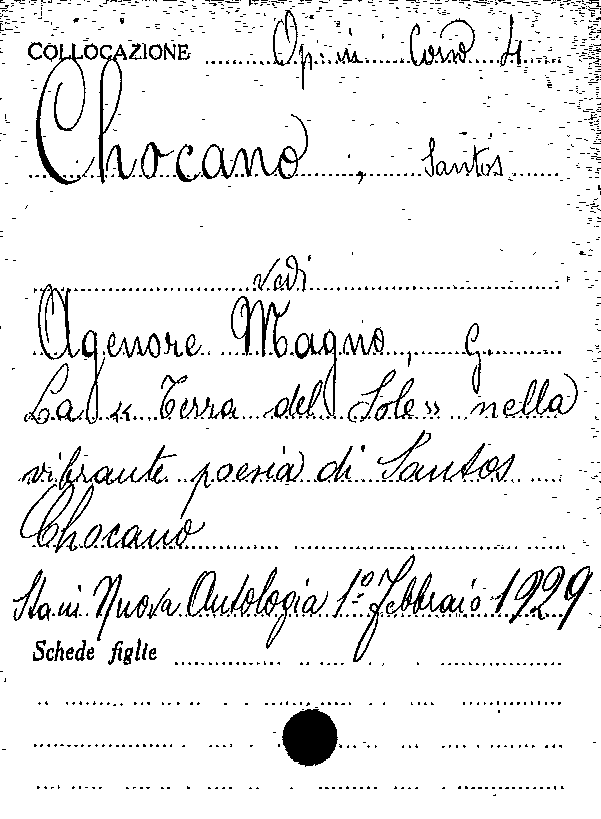 COLLOCAZIONE Opin Cons 4
Chocano, Santos
vedi
Agenore Magno, G.
La « Terra del Sole » nella
vibrante poesia di Santos
Chocano
Sta in Nuova Antologia 1º Febbraio 1929
Schede figlie